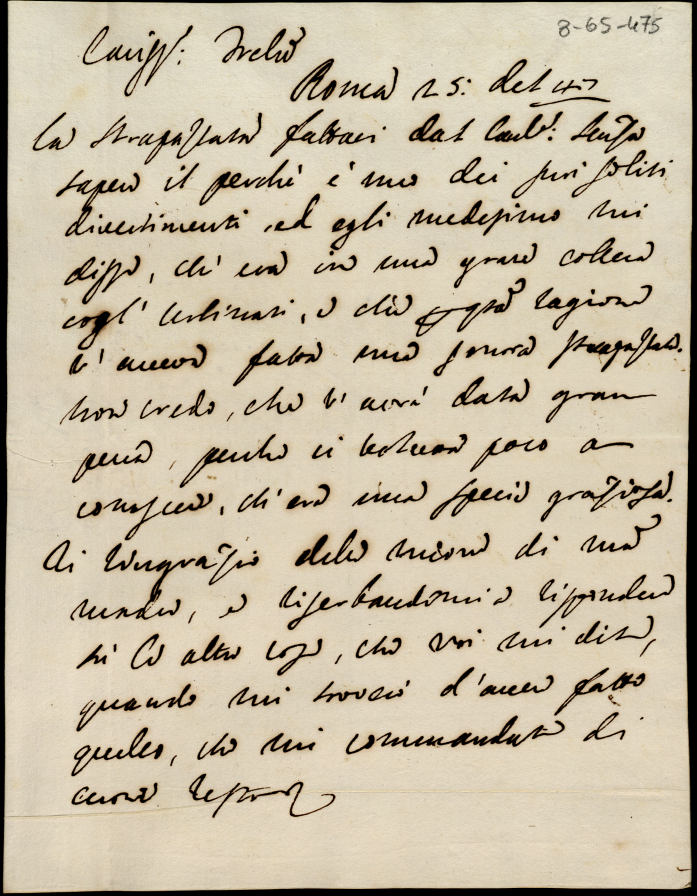 8-65-475
Cariss.: Frelo
Roma 25: del
La strapazzata fattaci dal Card.: senza
sapere il perchè è uno dei suoi soliti
divertimenti, ed egli medesimo mi
disse, ch'era in una gran collera
cogl'Urbinati, e che p qta ragione
v'aveva fatta una sonora strapazzata.
non credo, che v'avrà data gran
pena, perche ci voleva poco a
conoscere, ch'era una specie graziosa.
Vi ringrazio delle nuove di
madre, e riserbandomi a rispondere
su le altre cose, che voi mi dite,
quando mi troverò d'aver fatto
quello, che mi commandate di
cuore resto